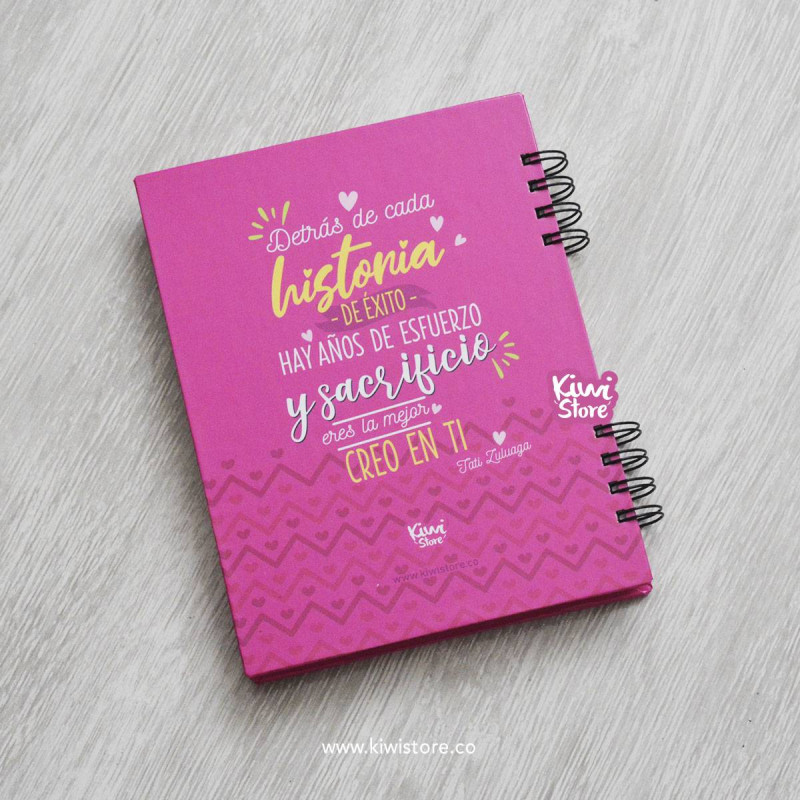 Detrás de cada
historia
- DE ÉXITO -
HAY AÑOS DE ESFUERZO
y sacrificio
eres la mejor
CREO EN TI
Tati Zuluaga
Kiwi
Store
Kiwi
Store
www.kiwistore.co
www.kiwistore.co